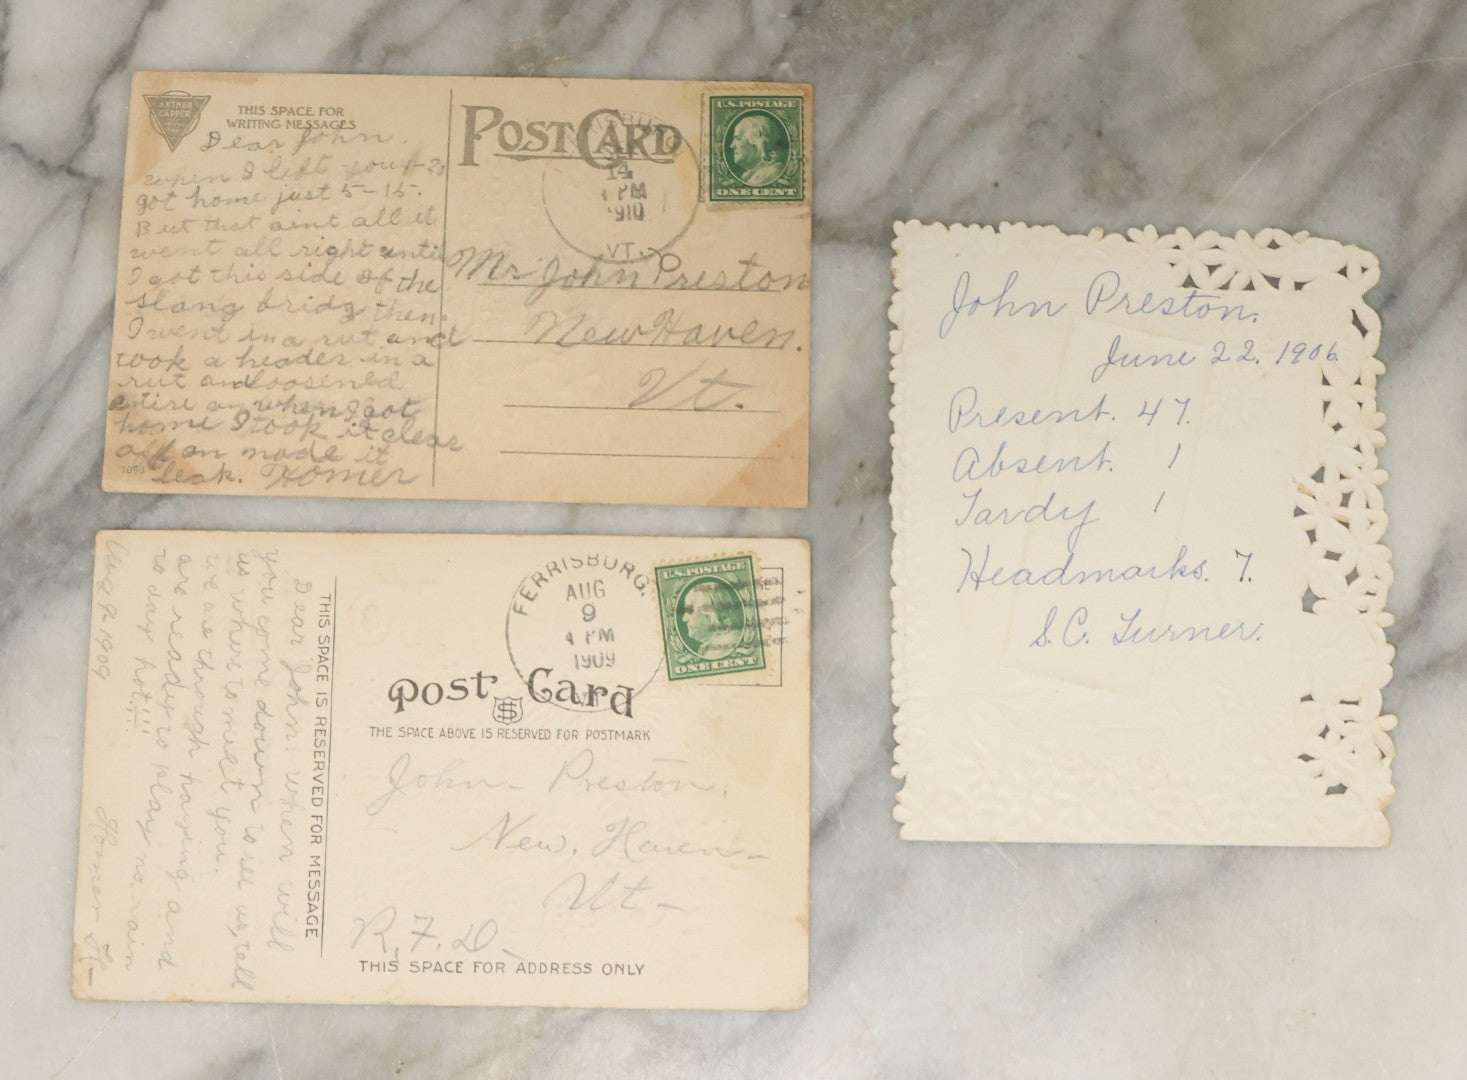 ARTHUR
CAPPER
THIS SPACE FOR
WRITING MESSAGES
Dear John.
when I left you 4-20
got home just 5-15.
But that aint all it
went all right until
I got this side of the
slang bridg then
I went in a rut and
took a header in a
rut and loosened
a tire an when I got
home I took it clear
off an made it
leak. Homer
1093
POST CARD
14
4 PM
1910
VT.
U.S. POSTAGE
ONE CENT
Mr John Preston
New Haven.
Vt.
Aug 9 1909
Dear John: when will
you come down to see us, tell
us where to meet you.
we are through haying and
are ready to play no rain
to day hot!!!
Homer H-
THIS SPACE IS RESERVED FOR MESSAGE
FERRISBURG.
AUG
9
4 PM
1909
U.S. POSTAGE
ONE CENT
Post Card
THE SPACE ABOVE IS RESERVED FOR POSTMARK
John Preston.
New. Haven-
Vt-
R.F.D.
THIS SPACE FOR ADDRESS ONLY
John Preston.
June 22. 1906
Present. 47.
Absent. 1
Tardy 1
Headmarks. 7.
S.C. Turner.